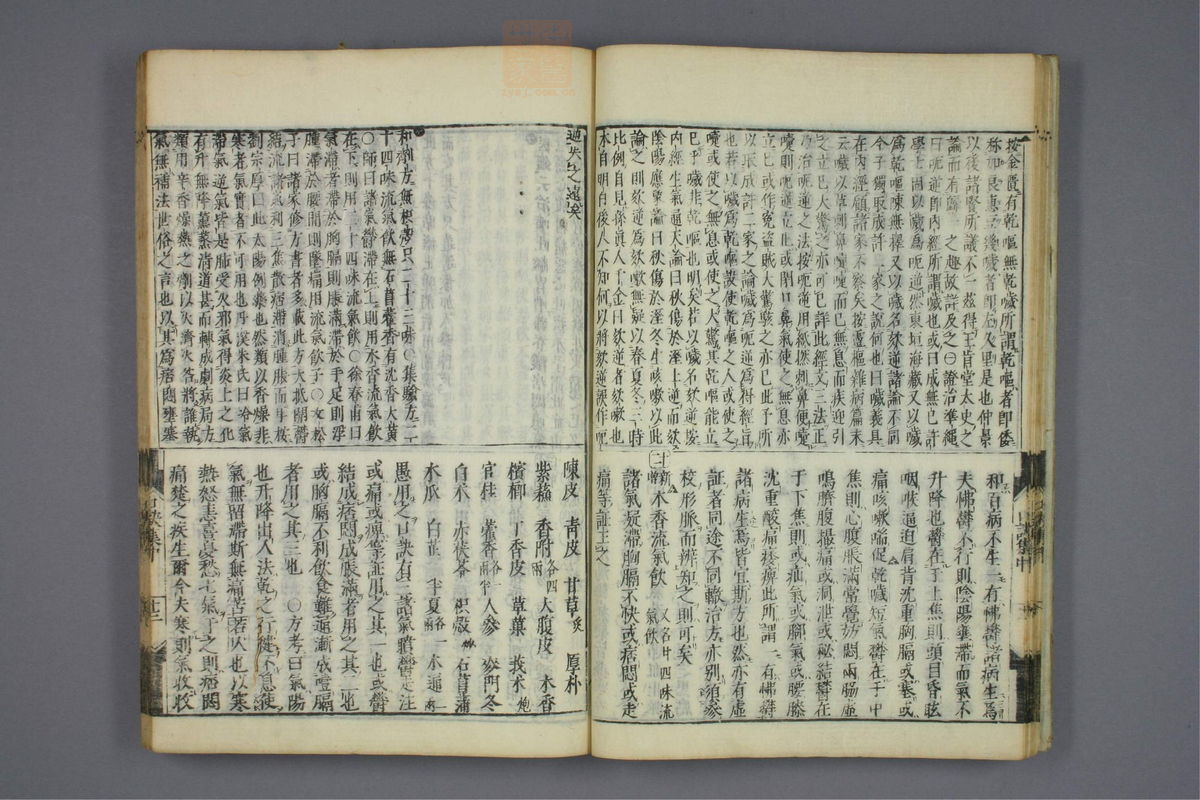 按金匱有乾嘔無乾噦所謂乾嘔者即倭
以後諸賢所議不一茲得王肯堂太史之
論而有歸一之趣故詳及之曰證治準繩
曰呃逆即內經所謂噦也或曰成無已許
學士固以噦爲呃逆然東垣海藏又以噦
爲乾嘔陳無擇又以噦名欬逆諸論不同
今子獨取成許二家之說何也曰噦義具
在內經顧諸家不察矣按靈樞雜病篇末
云噦以草刺鼻嚏嚏而已無息而疾迎引
之立已大驚之亦可已詳此經文三法正
乃治呃逆之法按呃逆用紙撚刺鼻便嚏
嚏則呃逆立止或閉口鼻氣使之無息亦
立已或作冤盜賊大驚駭之亦已此予所
以取成許二家之論噦爲呃逆爲得經旨
也若以噦爲乾嘔設使乾嘔之人或使之
嚏或使之無息或使之大驚其乾嘔能立
已乎噦非乾嘔也明矣若以噦名欬逆按
內經生氣通天論曰秋傷於溼上逆而欬
陰陽應象論曰秋傷於溼冬生咳嗽以此
論之則欬逆爲欬嗽無疑以春夏冬三時
比例自見孫眞人千金曰欬逆者欬嗽也
本自明白後人不知何以將欬逆誤作呃
和百病不生一有怫鬱諸病生焉
夫怫鬱不行則陰陽壅滯而氣不
升降也鬱在于上焦則頭目昏眩
咽喉逼迫肩背沈重胸膈或塞或
痛咳嗽喘促乾噦短氣鬱在于中
焦則心腹脹滿常覺妨悶兩脇虛
鳴臍腹撮痛或洞泄或秘結鬱在
于下焦則或疝氣或脚氣或腰膝
沈重酸痛痿痹此所謂一有怫鬱
諸病生焉皆宜斯方也然亦有虛
証者同途不同轍治方亦別須象
校形脈而辨知之則可矣
新木香流氣飲 又名廿四味流氣飲
諸氣痞滯胸膈不快或痞悶或走
痛等証主之
逆失之遠矣
和劑方無枳殼只二十三味○集驗方二
十四味流氣飲無石菖藿香有沈香大黃
○師曰諸氣鬱滯在上則用木香流氣飲
在下則用二十四味流氣飲○徐春甫曰
氣滯者滯於胸膈則脹滿滯於手足則浮
腫滯於腰間則墜痛用流氣飲子○文松
子曰諸家修方書者多載此方大抵開鬱
結流滯氣利三焦散痞滯消腫脹而甲校
劉宗厚曰此太陽例藥也然類以香燥非
寒者氣實者不可用也丹溪朱氏曰冷氣
滯氣逆氣皆是肺受火邪氣得炎上之化
有升無降薰蒸清道甚而轉成劇病局方
類用辛香燥熱之劑以火濟火咎將誰執
氣無補法世俗之言也以其爲痞悶壅塞
陳皮 青皮 甘草炙 厚朴
紫蘇 香附各四兩 大腹皮 木香
檳榔 丁香皮 草菓 莪朮炮
官桂 藿香各一兩半 人參 麥門冬
白朮 赤茯苓 枳殼 石菖蒲
木瓜 白芷 半夏各一兩 木通二兩
愚用之口訣有三諸氣臍鬱走注
或痛或痺等証用之其一也或鬱
結成痞悶成脹滿者用之其二也
或胸膈不利飲食難逼漸成噎膈
者用之其三也 ○方考曰氣陽
也升降出入法乾之行健不息使
氣無留滯斯無痛苦若厥也以寒
熱怒恚喜憂愁七氣干之則痞悶
痛楚之疾生爾今夫寒則氣收收